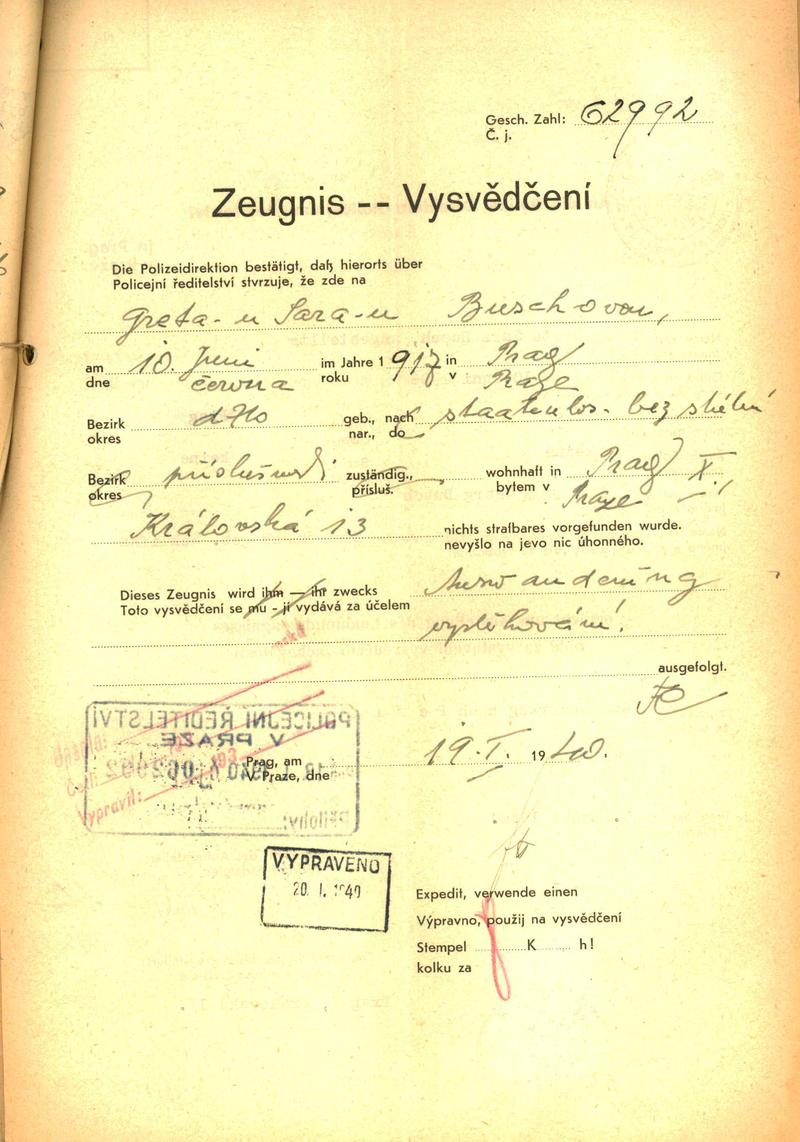 Gesch. Zahl: 62992
Č. j.
Zeugnis -- Vysvědčení
Die Polizeidirektion bestätigt, daß hierorts über
Policejní ředitelství stvrzuje, že zde na
Greta-u Sara-u Buschovou,
am 10. Juni im Jahre 1 917 in Prag
dne června roku v Praze
Bezirk dtto geb., nach staatenlos - bez státní
okres nar., do
Bezirk příslušnosti zuständig., wohnhaft in Prag X.
okres přísluš. bytem v Praze
Královská 13 nichts strafbares vorgefunden wurde.
nevyšlo na jevo nic úhonného.
Dieses Zeugnis wird ihm — ihr zwecks Auswanderung
Toto vysvědčení se mu - jí vydává za účelem
vystěhování.
ausgefolgt.
POLICEJNÍ ŘEDITELSTVÍ
V PRAZE
Prag, am 19. I. 1940.
V Praze, dne
Vypravil:
Přílohy:
VYPRAVENO
20. I. 1940
Expedit, verwende einen
Výpravno, použij na vysvědčení
Stempel K h!
kolku za